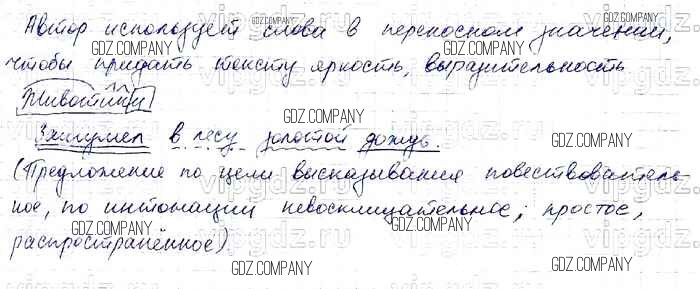 Автор использует слова в переносном значении,
чтобы придать тексту яркость, выразительность
Животики
Зашумел в лесу золотой дождь.
(Предложение по цели высказывания повествователь-
ное, по интонации невосклицательное; простое,
распространённое).
GDZ.COMPANY
GDZ.COMPANY
GDZ.COMPANY
GDZ.COMPANY
GDZ.COMPANY
GDZ.COMPANY
GDZ.COMPANY
GDZ.COMPANY
vipgdz.ru
vipgdz.ru
vipgdz.ru
vipgdz.ru